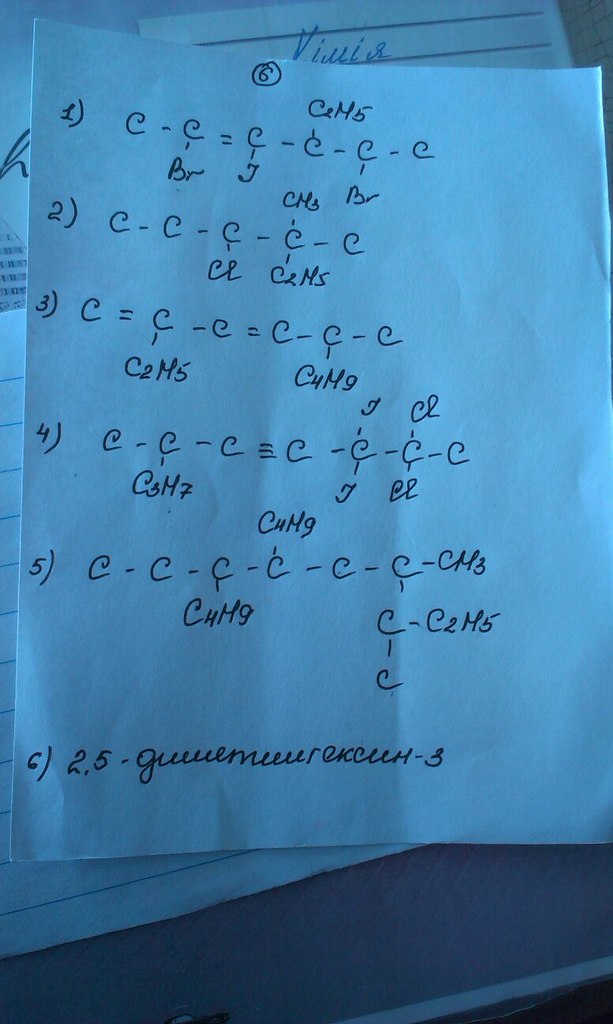 Хімія
6
1) C - C = C - C - C - C
C2H5
Br J Br
2) C - C - C - C - C
CH3
Cl C2H5
3) C = C - C = C - C - C
C2H5 C4H9
4) C - C - C ≡ C - C - C - C
J Cl
C3H7 J Cl
C4H9
5) C - C - C - C - C - C - CH3
C4H9
C - C2H5
C
6) 2,5 - диметилгексин-3